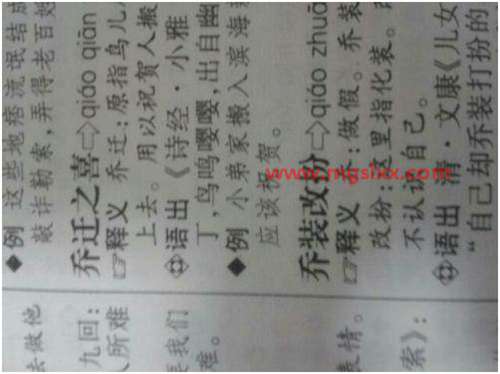 ◆例 这些地痞流氓结成
敲诈勒索,弄得老百姓
乔迁之喜⇨qiáo qiān
☞释义 乔迁:原指鸟儿
上去。用以祝贺人搬
语出《诗经·小雅
丁,鸟鸣嘤嘤,出自幽
◆例 小弟家搬入滨海
应该祝贺。
乔装改扮⇨qiáo zhuā
☞释义 乔:做假。乔装
改扮:这里指化装。
不认识自己。
语出 清·文康《儿女
“自己却乔装打扮的
去做他
九回:
人所难
要我们
难。
表情。
索》: